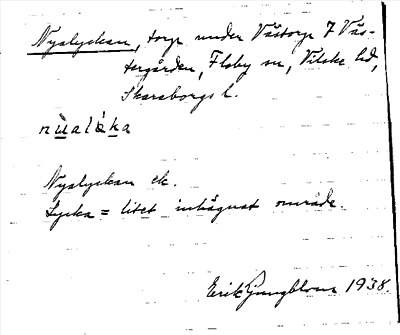 Nyalyckan, torp under Västorp 7 Väs-
tergården, Floby sn, Vilske hd,
Skaraborgs l.
nùalǜka
Nyalyckan ek.
Lycka = litet inhägnat område.
Erik Ljungblom 1938.